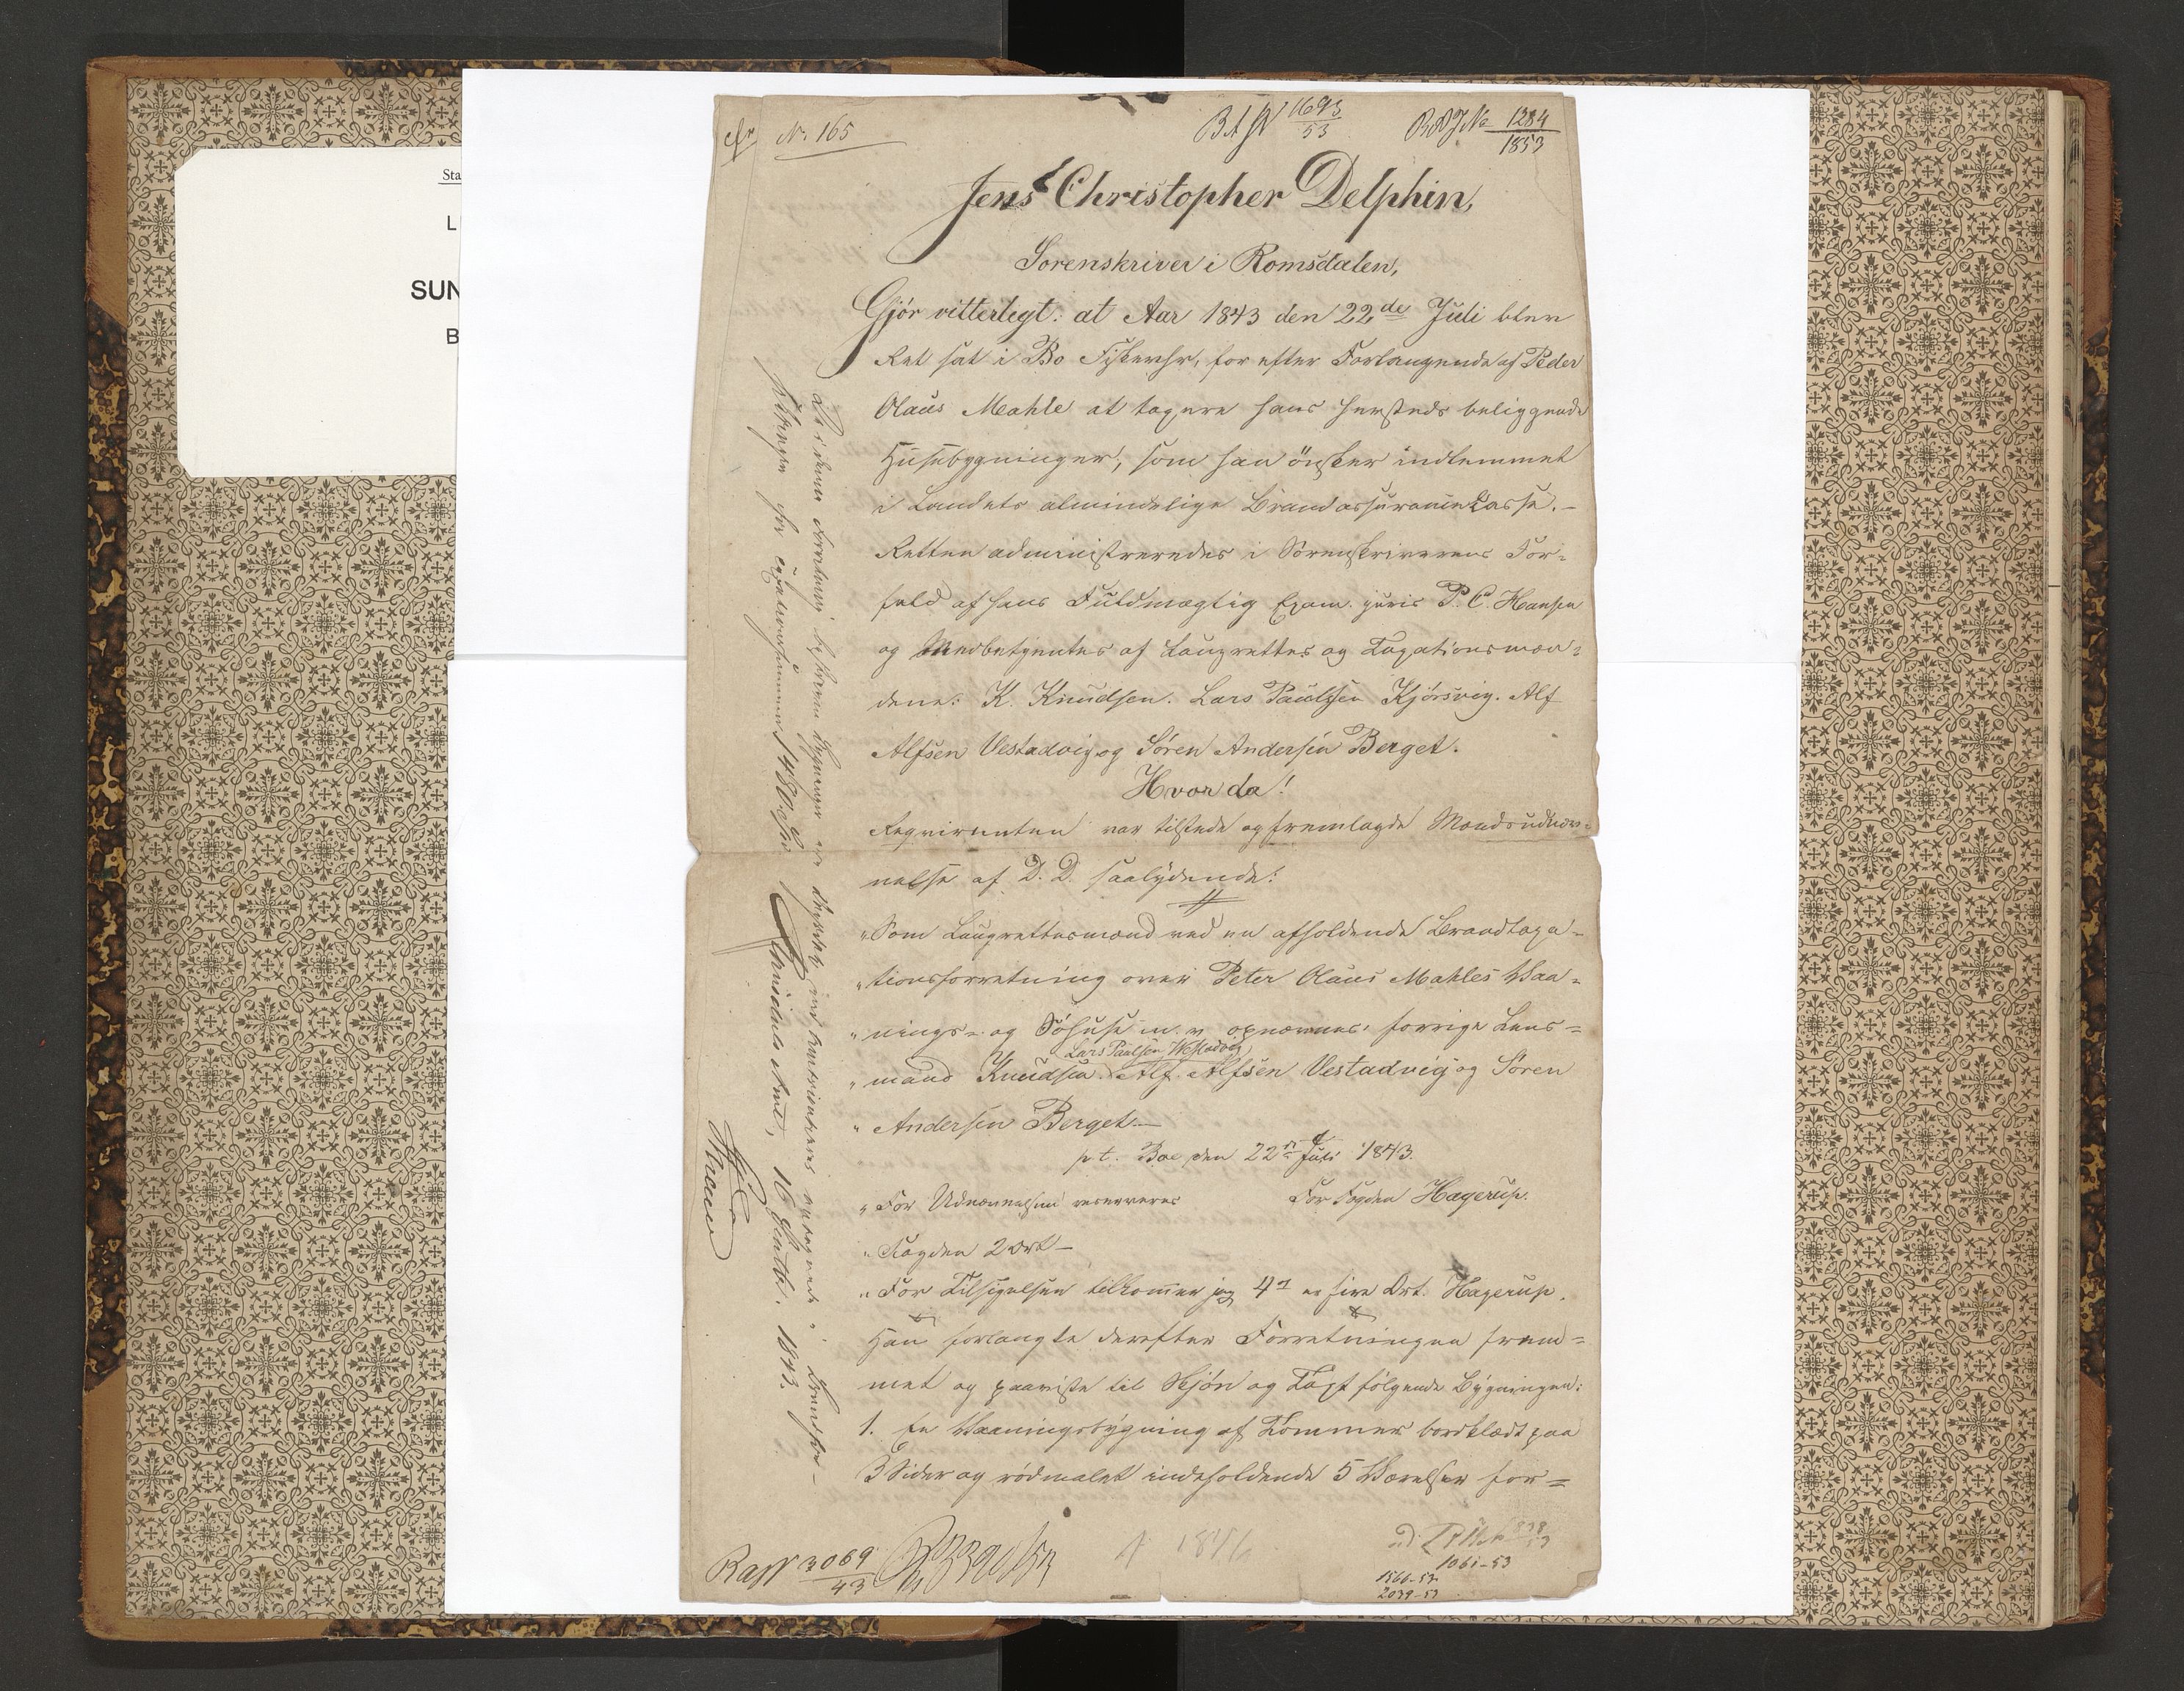 Sta
L
SUN
B
No. 165
1693
53
1284
1853
Jens Christopher Delphin,
Sorenskriver i Romsdalen,
Gjör vitterlegt: at Aar 1843 den 22de Juli blev
Ret sat i Bo Fiskevær, for efter Forlangende af Peder
Olaus Mahle at taxere hans hersteds beliggende
Huusbygninger, som han önsker indlemmet
i Landets almindelige Brandassurancekasse.-
Retten administreredes i Sörenskriverens For-
fald af hans Fuldmægtig Exam. juris P. C. Hansen
og Medbetjentes af Laugrettes og Taxationsmæn-
dene: K. Knudsen. Lars Paulsen Kjörsvig. Alf
Alfsen Vestadvig og Sören Andersen Berget.
Hvor da!
Reqvirenten var tilstede og fremlagde Mandsudnæv-
nelse af D. D. saalydende:
"Som Laugrettesmænd ved en afholdende Brandtaxa-
"tionsforretning over Peter Olaus Mahles Vaa-
"nings- og Söhuse m. v. opnævnes, forrige Lens-
Lars Paulsen
"mand Knudsen. Alf Alfsen Vestadvig og Sören
"Andersen Berget.-
p. t. Boe den 22n Juli 1843.
"For Udnævnelsen reserveres For Fogden Hagerup.
"Fogden 2 Ort-
"For Tilsigelsen tilkommer jeg 4 er fire Ort. Hagerup.
Han forlangte derefter Forretningen frem-
met og paaviste til Skjön og Taxt fölgende Bygninger:
1. En Vaaningsbygning af Tömmer bordklædt paa
3 Sider og rödmalet indeholdende 5 Værelser for-
3069
43
1846
1061-53
1566-53
2039-53
De i denne Forretning beskrevne Bygninger ere
Romsdals Amt, 16 1843.